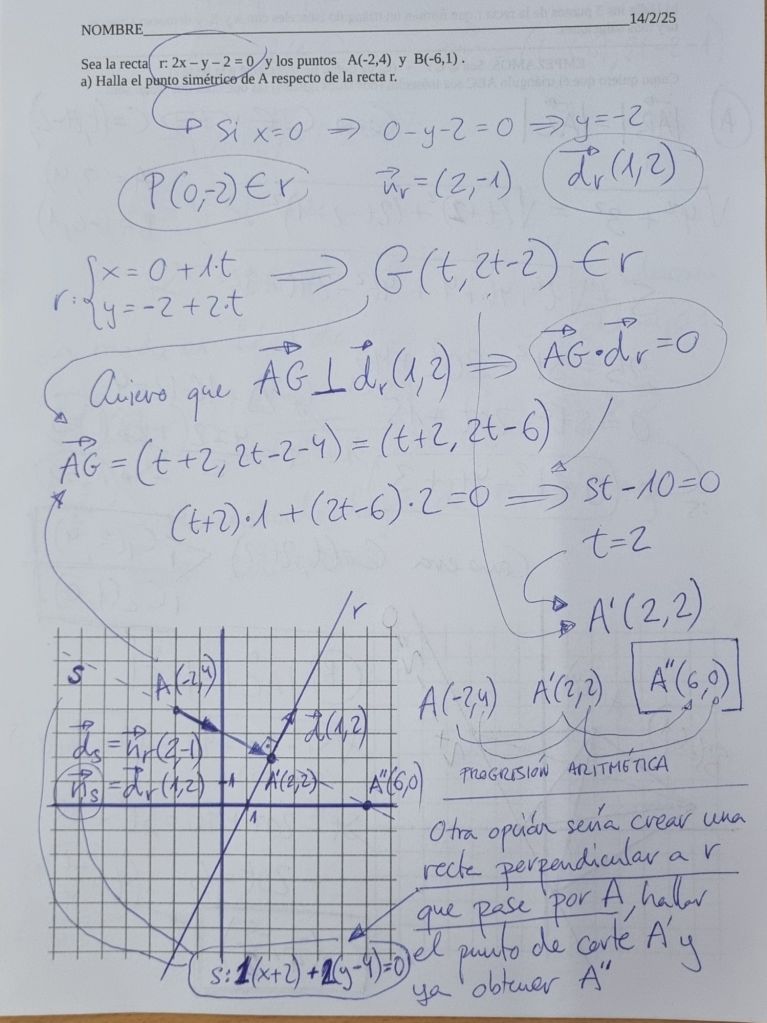 NOMBRE 14/2/25
Sea la recta r: 2x – y – 2 = 0 y los puntos A(-2,4) y B(-6,1) .
a) Halla el punto simétrico de A respecto de la recta r.
Si x=0 ⇒ 0-y-2=0 ⇒ y=-2
P(0,-2) ∈ r n⃗r=(2,-1) d⃗r(1,2)
r: { x = 0+1·t ⇒ G(t, 2t-2) ∈ r
y = -2+2·t
Quiero que AG⃗ ⊥ d⃗r(1,2) ⇒ AG⃗·d⃗r=0
AG⃗ = (t+2, 2t-2-4) = (t+2, 2t-6)
(t+2)·1+(2t-6)·2=0 ⇒ 5t-10=0
t=2
A'(2,2)
r
S
A(-2,4)
d⃗(1,2)
d⃗s=n⃗r(2,-1)
n⃗s=d⃗r(1,2)
1
A'(2,2)
A''(6,0)
1
A(-2,4) A'(2,2) A''(6,0)
PROGRISIÓN ARITMÉTICA
Otra opción sería crear una
recta perpendicular a r
que pase por A, hallar
el punto de corte A' y
ya obtener A''
s: 1(x+2)+2(y-4)=0